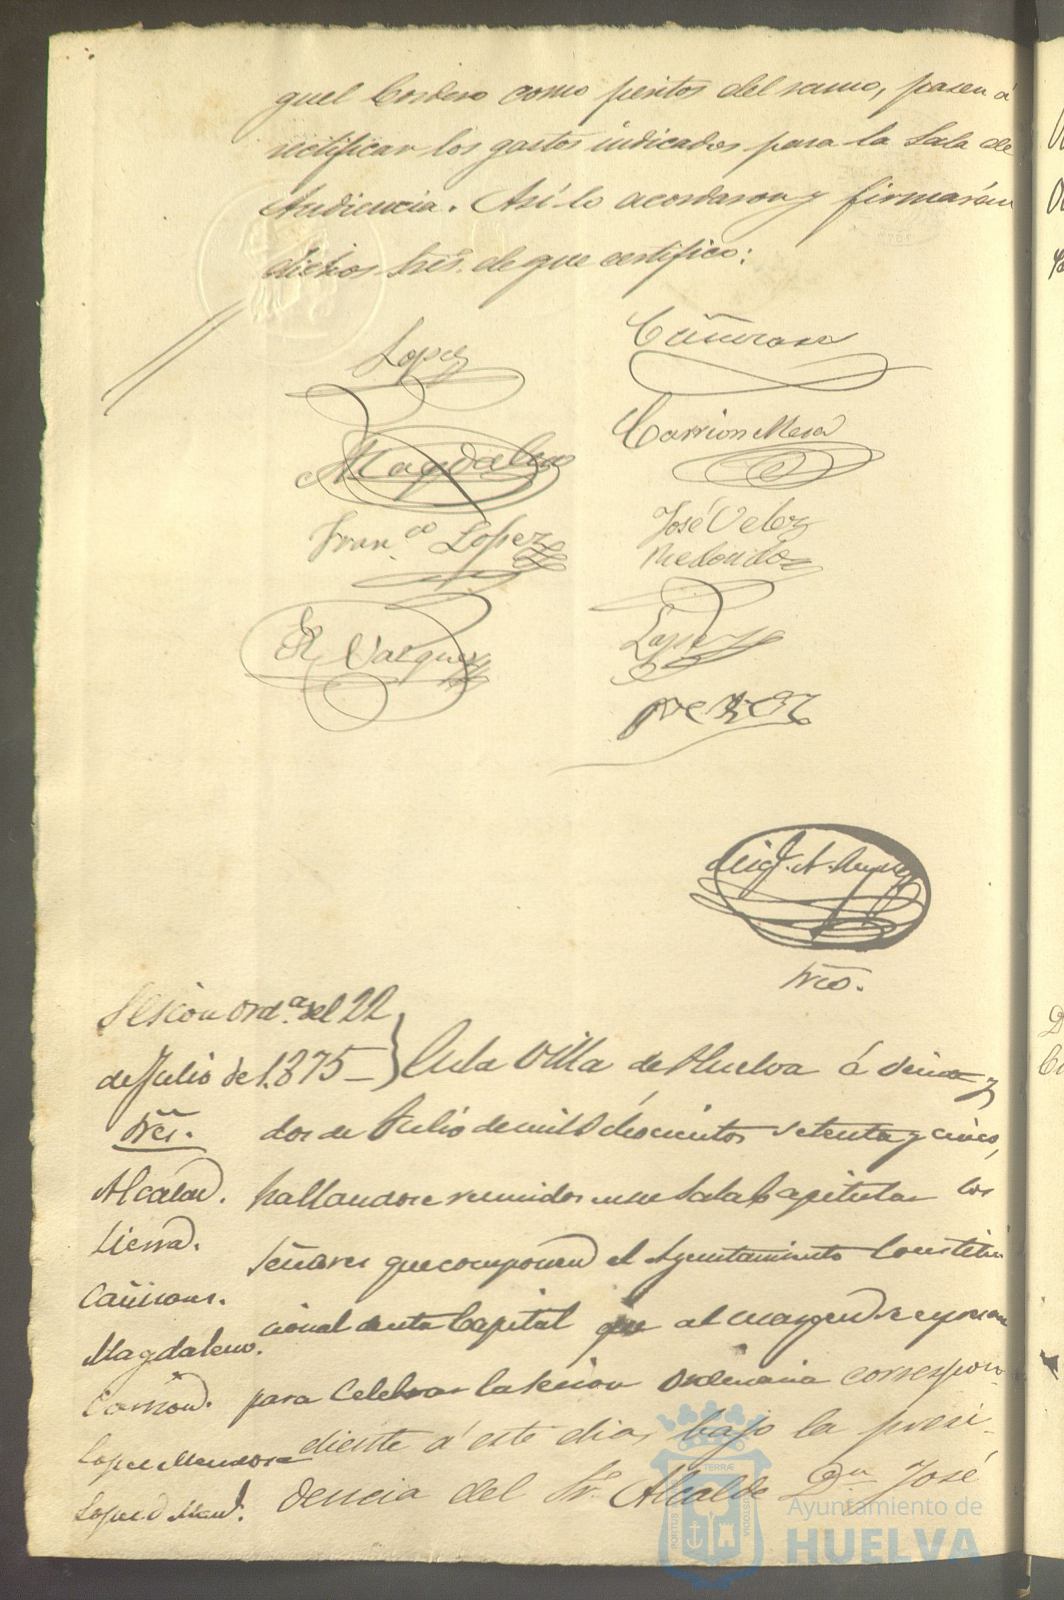 guel Cordero como peritos del ramo, pasen á
rectificar los gastos indicados para la Sala de
Audiencia. Así lo acordaron y firmarán
dichos Sres. de que certifico:
Lopez
Cáñivano
Magdaleno
Carrion Mesa
Fran.co Lopez
José Velez
Redondo
R Vazquez
Lopez
Perez
Srio.
Sesion Ord.a del 22
de Julio de 1.875
En la Villa de Huelva á veinte y
Sres.
dos de Julio de mil ochocientos setenta y cinco,
Alcalde.
hallandose reunidos en su Sala Capitular los
Sierra.
Señores que componen el Ayuntamiento Constitu
Cañivano.
cional de esta Capital que al margen se expresan
Magdaleno.
para celebrar la sesion ordinaria correspon-
Carrion.
diente á este dia, bajo la presi-
Lopez Mendoza
dencia del Sr. Alcalde Dn. José
Lopez
PORTUS
TERRÆ
CUSTODIA
Ayuntamiento de
HUELVA